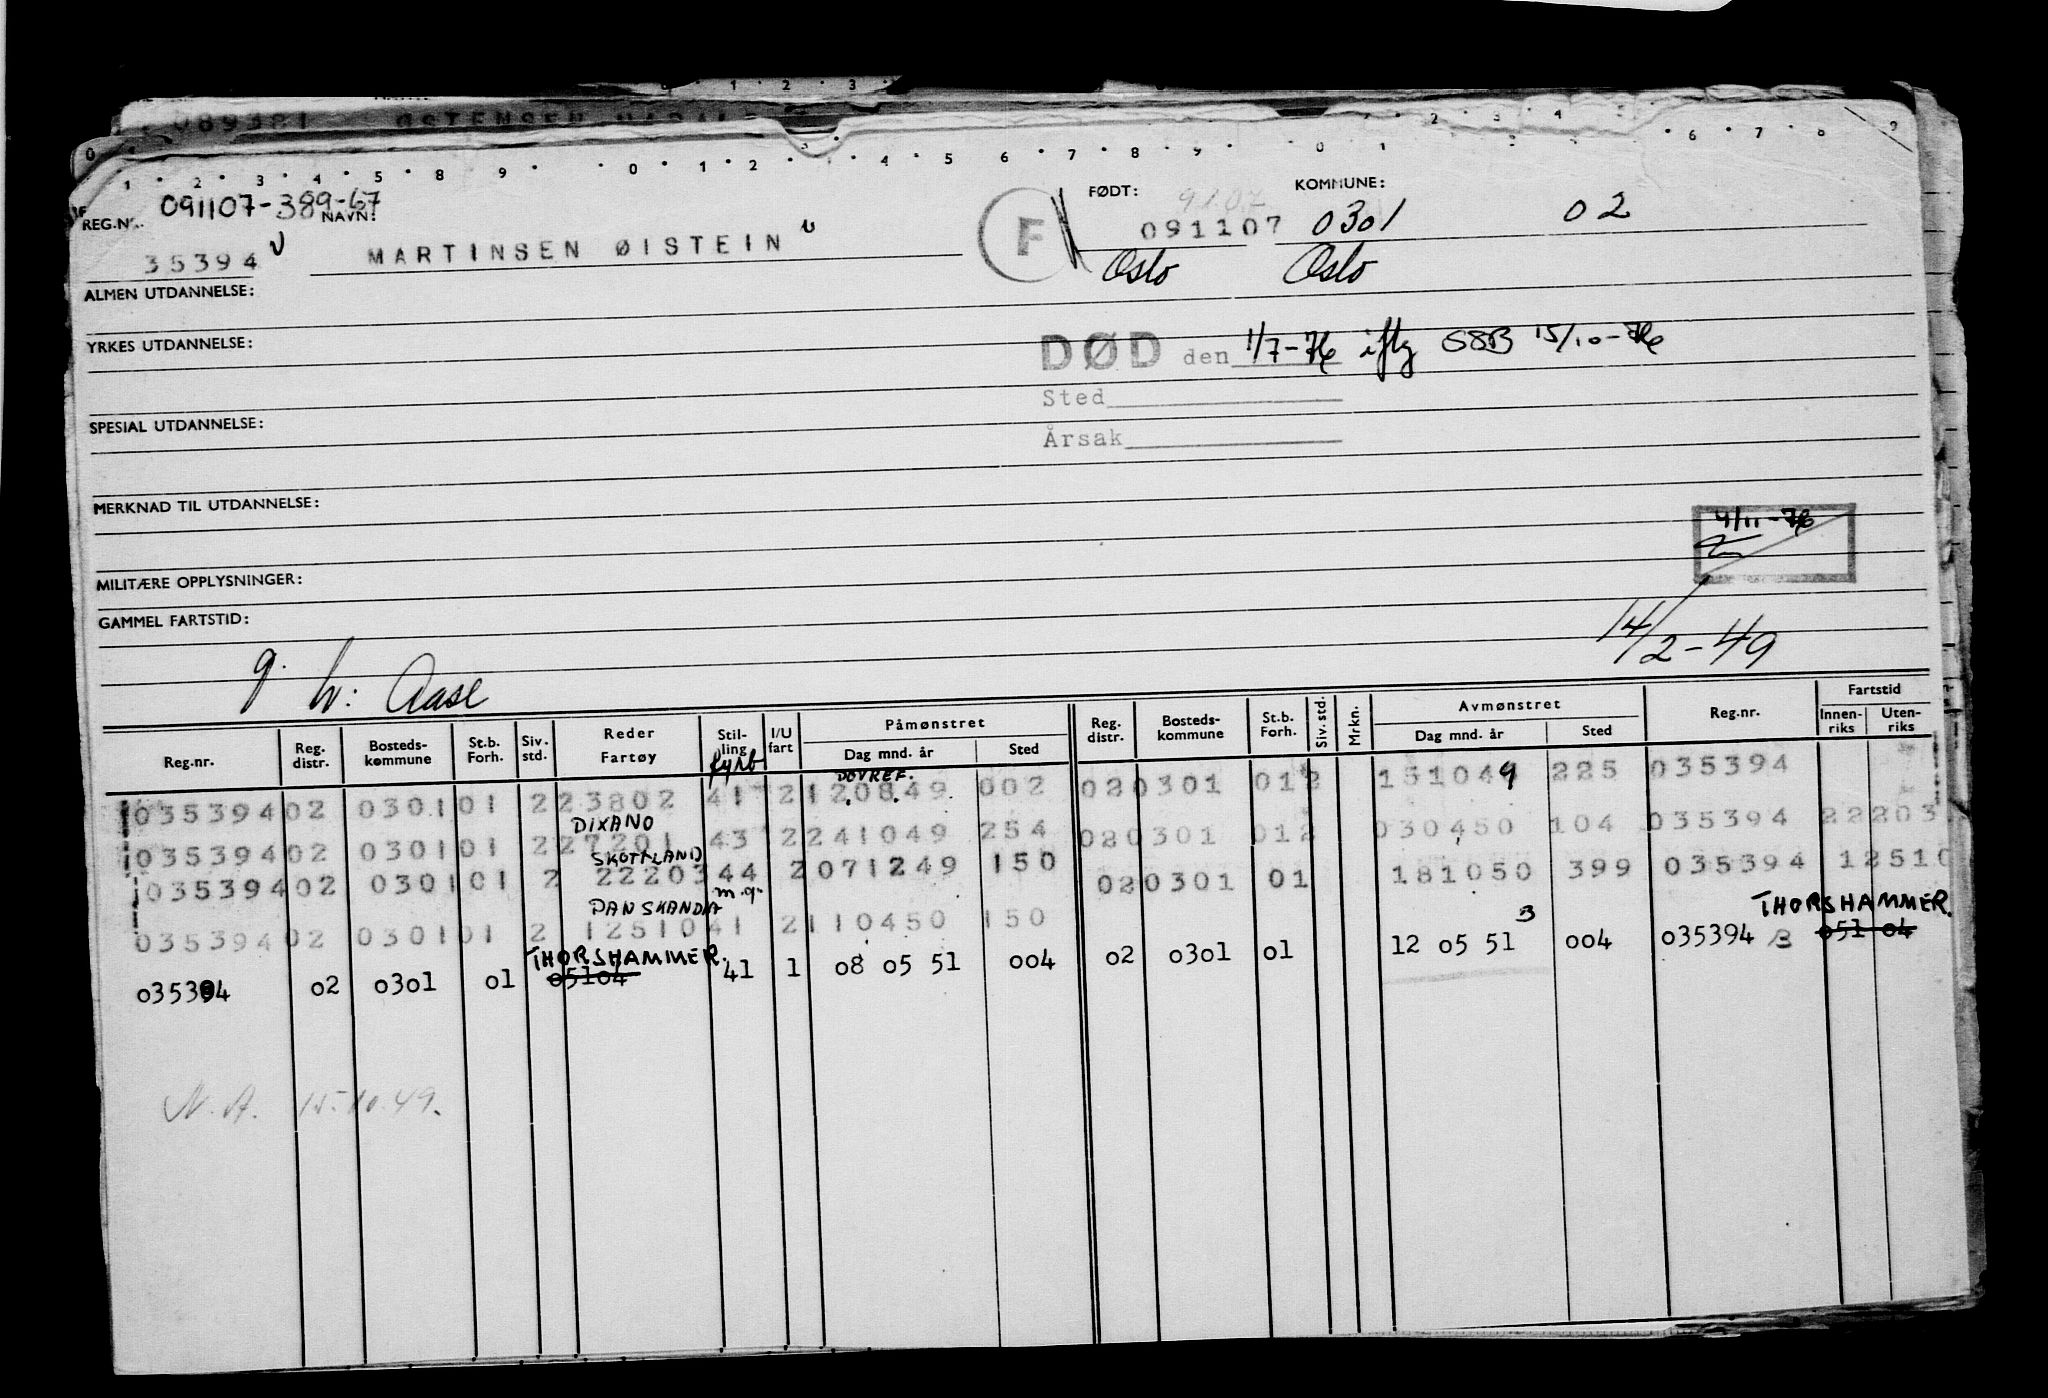 089381 ØSTENSEN HARALD
REG.NR. 091107-389-67 NAVN: FØDT: KOMMUNE:
35394 MARTINSEN ØISTEIN F 091107 0301 02
Oslo Oslo
ALMEN UTDANNELSE:
YRKES UTDANNELSE:
DØD den 1/7-76 iflg OSB 15/10-76
Sted
SPESIAL UTDANNELSE:
Årsak
MERKNAD TIL UTDANNELSE:
4/11-76
MILITÆRE OPPLYSNINGER:
GAMMEL FARTSTID:
14/2-49
g. h: Aase
Reg.nr. Reg. distr. Bosteds- kommune St.b. Forh. Siv. std. Reder Fartøy Stil- ling I/U fart Påmønstret Dag mnd. år Sted Reg. distr. Bosteds- kommune St.b. Forh. Siv. std. Mrkn. Avmønstret Dag mnd. år Sted Reg.nr. Fartstid Innen- riks Uten- riks
fyrb DOVREF.
035394 02 0301 01 2 23802 41 2 120849 002 02 0301 01 2 151049 225 035394
DIXANO
035394 02 0301 01 2 27201 43 2 241049 254 02 0301 01 2 030450 104 035394 22203
SKOTTLAND
035394 02 0301 01 2 22203 44 2 071249 150 02 0301 01 181050 399 035394 12510
m.g. DANSKANDIA
035394 02 0301 01 2 12510 41 2 110450 150
THORSHAMMER. B THORSHAMMER.
035394 02 0301 01 05104 41 1 08 05 51 004 02 0301 01 12 05 51 004 035394 B 051 04
N.A. 15.10.49.